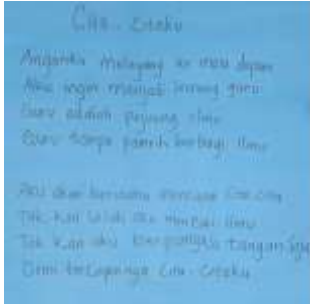 Cita - Citaku
Anganku melayang ke masa depan
Aku ingin menjadi seorang guru
Guru adalah pejuang ilmu
Guru tanpa pamrih berbagi ilmu
Aku akan berusaha menggapai cita-cita
Tak kan lelah aku mencari ilmu
Tak kan aku berpangku tangan
Demi tercapainya cita-citaku